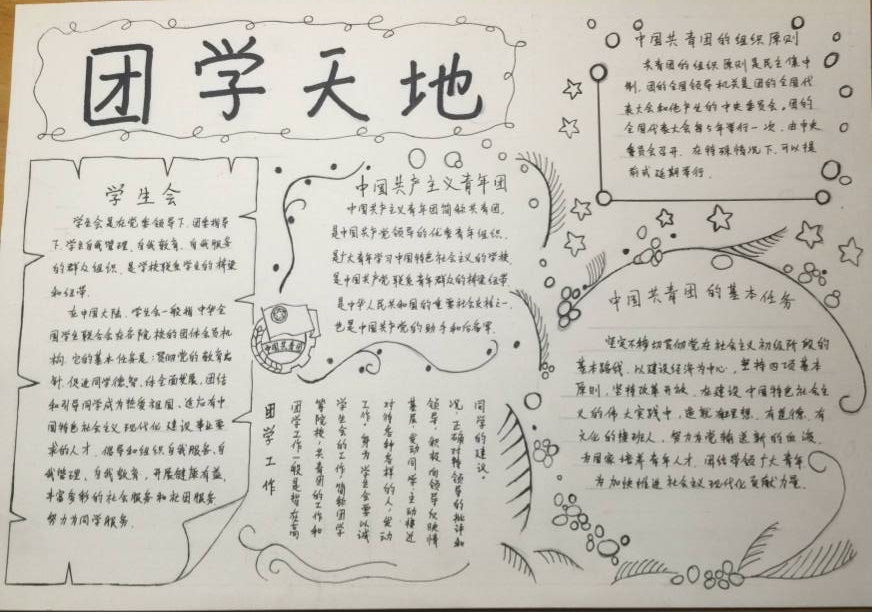 团学天地
学生会
学生会是在党委领导下,团委指导
下,学生自我管理、自我教育、自我服务
的群众组织,是学校联系学生的桥梁
和纽带.
在中国大陆,学生会一般指中华全
国学生联合会在各院校的团体会员机
构.它的基本任务是:贯彻党的教育方
针,促进同学德智、体全面发展,团结
和引导同学成为热爱祖国、适应有中
国特色社会主义现代化建设事业要
求的人才.倡导和组织自我服务,自
我管理,自我教育,开展健康有益,
丰富多彩的社会服务和社团服务
努力为同学服务.
中国共产主义青年团
中国共产主义青年团简称共青团,
是中国共产党领导的优秀青年组织,
是广大青年学习中国特色社会主义的学校,
是中国共产党联系青年群众的桥梁纽带
是中华人民共和国的重要社会支柱之一,
也是中国共产党的助手和后备军.
中国共青团
团学工作
团学工作一般是指在高
等院校,共青团的工作和
学生会的工作,简称团学
工作.身为学生会要以诚
对待各种各样的人,发动
基层,发动同学,主动接近
领导,积极向领导反映情
况,正确对待领导的批评和
同学的建议.
中国共青团的组织原则
共青团的组织原则是民主集中
制,团的全国领导机关是团的全国代
表大会和他产生的中央委员会。团的
全国代表大会每5年举行一次,由中央
委员会召开.在特殊情况下,可以提
前或延期举行.
中国共青团的基本任务
坚定不移切贯彻党在社会主义初级阶段的
基本路线,以建设经济为中心,坚持四项基本
原则,坚持改革开放,在建设中国特色社会主
义的伟大实践中,造就有理想、有道德、有
文化的接班人,努力为党输送新的血液,
为国家培养青年人才,团结带领广大青年
为加快推进社会主义现代化贡献力量.